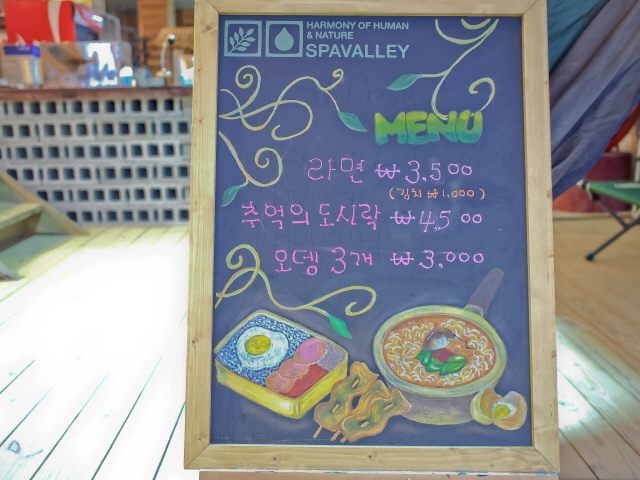 HARMONY OF HUMAN
& NATURE
SPAVALLEY
MENU
라면 ₩3,500
(김치 ₩1,000)
추억의 도시락 ₩4,500
오뎅 3개 ₩3,000